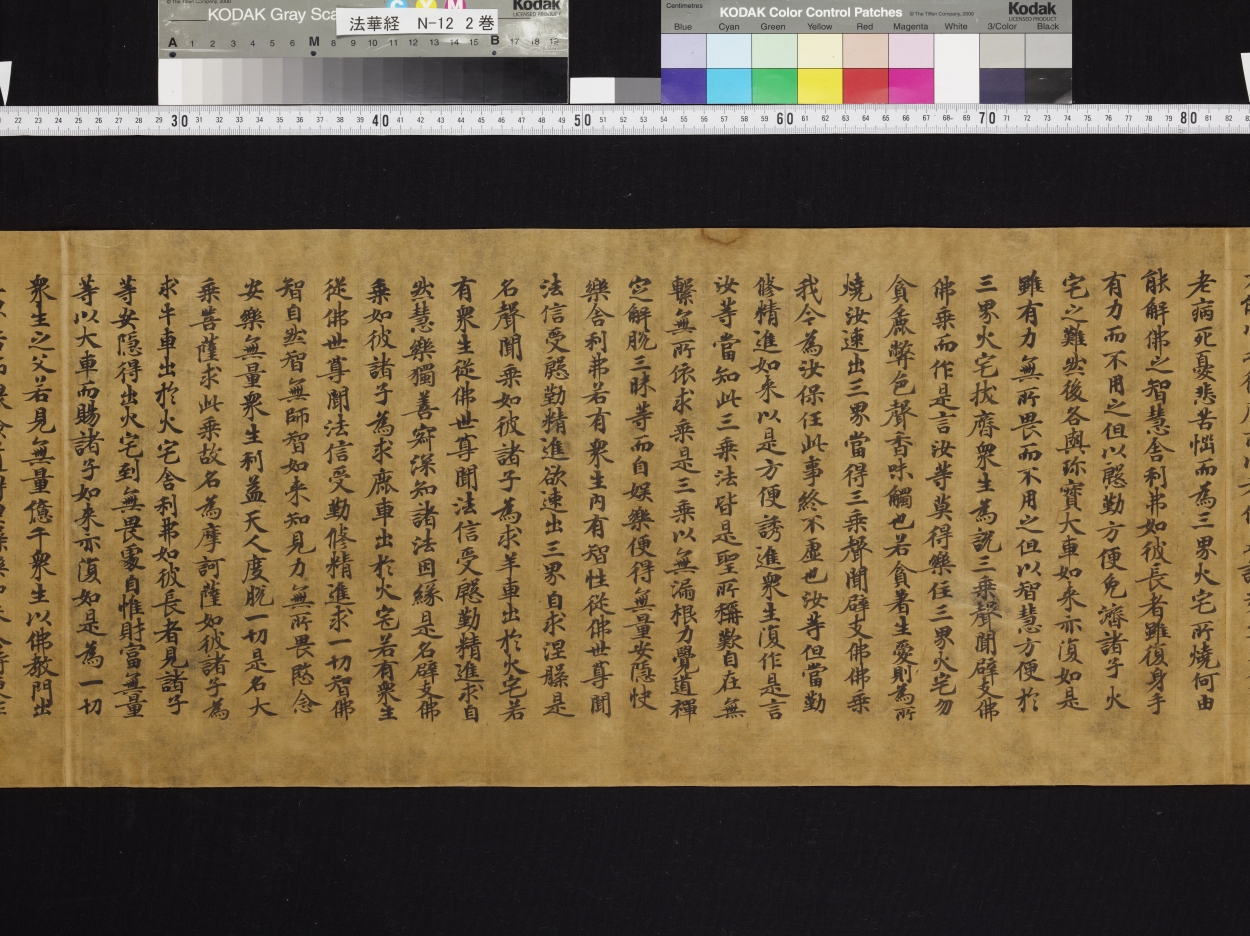 © The Tiffen Company, 2000
KODAK Gray Sca
C Y M
Kodak
LICENSED PRODUCT
法華経 N-12 2巻
A 1 2 3 4 5 6 M 8 9 10 11 12 13 14 15 B 17 18 19
Centimetres
KODAK Color Control Patches
© The Tiffen Company, 2000
Kodak
LICENSED PRODUCT
Blue Cyan Green Yellow Red Magenta White 3/Color Black
22 23 24 25 26 27 28 29 30 31 32 33 34 35 36 37 38 39 40 41 42 43 44 45 46 47 48 49 50 51 52 53 54 55 56 57 58 59 60 61 62 63 64 65 66 67 68 69 70 71 72 73 74 75 76 77 78 79 80 81 82
老病死憂悲苦惱而為三界火宅所燒何由
能解佛之智慧舍利弗如彼長者雖復身手
有力而不用之但以慇勤方便免濟諸子火
宅之難然後各與珎寶大車如来亦復如是
雖有力無所畏而不用之但以智慧方便於
三界火宅拔濟衆生為說三乗聲聞辟支佛
佛乗而作是言汝等莫得樂住三界火宅勿
貪麁弊色聲香味觸也若貪著生愛則為所
燒汝速出三界當得三乗聲聞辟支佛佛乗
我今為汝保任此事終不虛也汝等但當勤
修精進如来以是方便誘進衆生復作是言
汝等當知此三乗法皆是聖所稱歎自在無
繫無所依求乗是三乗以無漏根力覺道禪
定解脫三昧等而自娛樂便得無量安隱快
樂舍利弗若有衆生內有智性從佛世尊聞
法信受慇勤精進欲速出三界自求涅槃是
名聲聞乗如彼諸子為求羊車出於火宅若
有衆生從佛世尊聞法信受慇勤精進求自
然慧樂獨善寂深知諸法因緣是名辟支佛
乗如彼諸子為求鹿車出於火宅若有衆生
從佛世尊聞法信受勤修精進求一切智佛
智自然智無師智如来知見力無所畏愍念
安樂無量衆生利益天人度脫一切是名大
乗菩薩求此乗故名為摩訶薩如彼諸子為
求牛車出於火宅舍利弗如彼長者見諸子
等安隱得出火宅到無畏處自惟財富無量
等以大車而賜諸子如来亦復如是為一切
衆生之父若見無量億千衆生以佛教門出